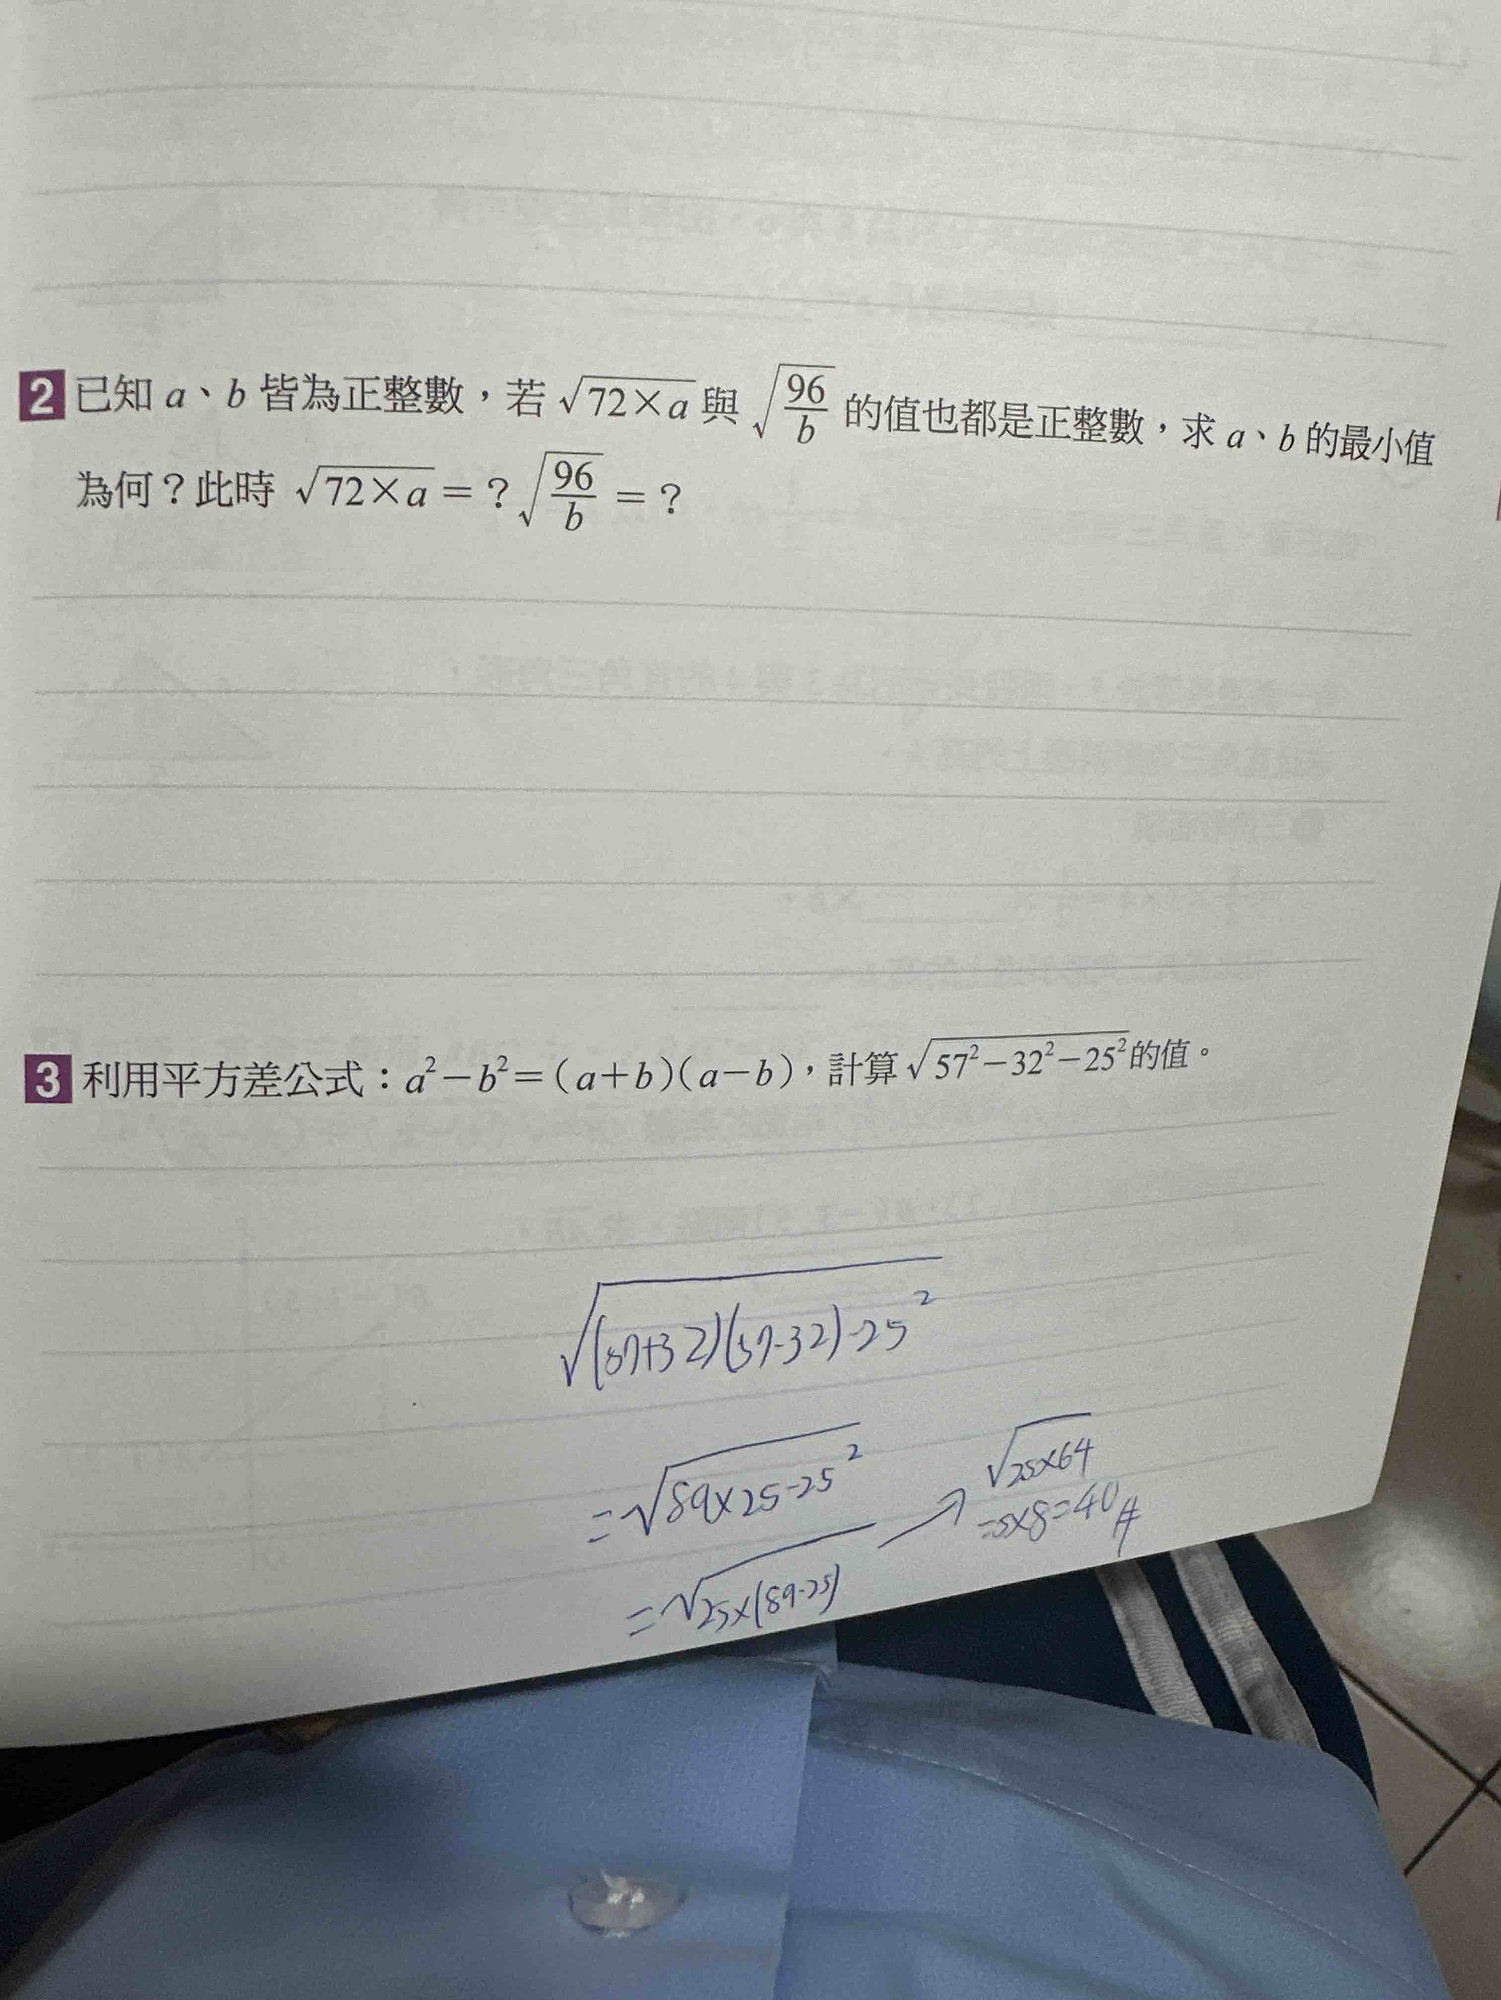 2 已知 a、b 皆為正整數，若 √72×a 與 √96/b 的值也都是正整數，求 a、b 的最小值
為何？此時 √72×a = ? √96/b = ?
3 利用平方差公式：a²－b²=(a+b)(a－b)，計算 √57²－32²－25² 的值。
√(57+32)(57-32)-25²
=√89×25-25²
=√25×(89-25)
√25×64
=5×8=40#